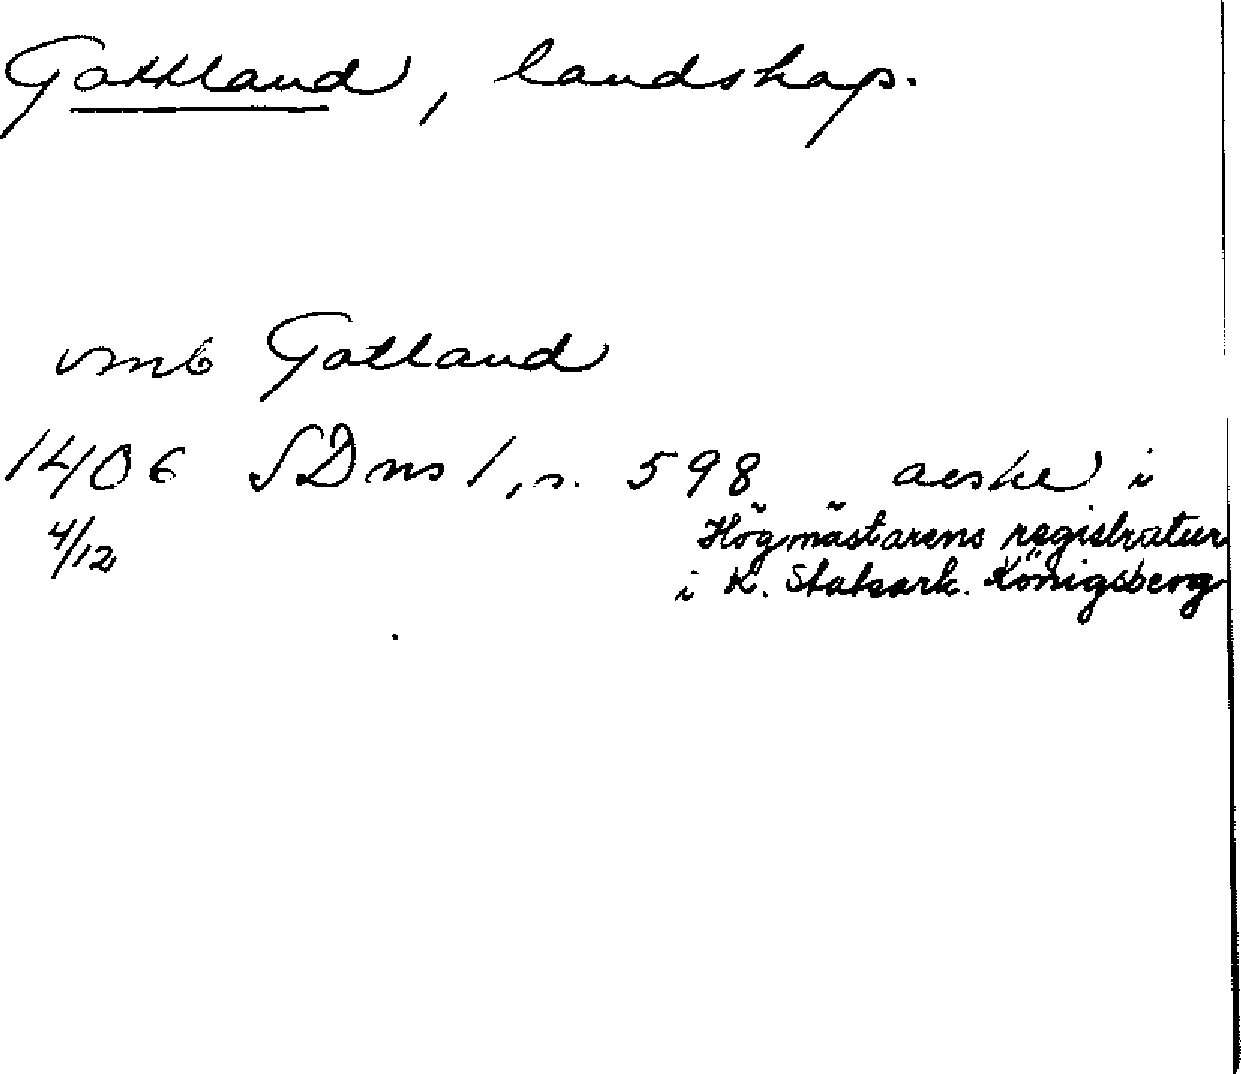 Gottland, landskap.
vmb Gotland
1406 SDns 1, s. 598 avskr i
4/12 Högmästarens registratur
i K. Statsark. Königsberg